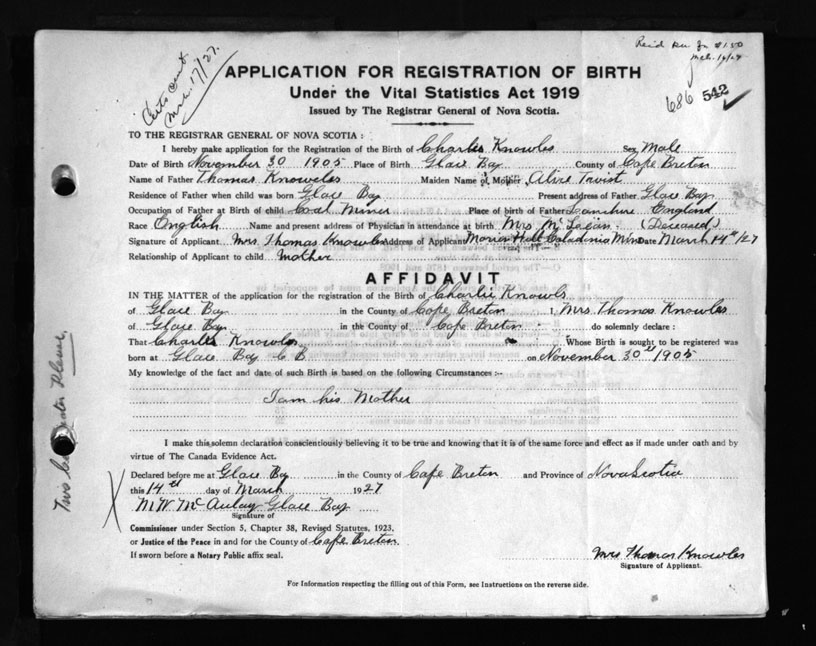 Rec'd $1.50
Mch. 16/27
Certs sent
Mch. 17/27.
686 542
APPLICATION FOR REGISTRATION OF BIRTH
Under the Vital Statistics Act 1919
Issued by The Registrar General of Nova Scotia.
TO THE REGISTRAR GENERAL OF NOVA SCOTIA :
I hereby make application for the Registration of the Birth of Charlie Knowles Sex Male
Date of Birth November 30 1905 Place of Birth Glace Bay County of Cape Breton
Name of Father Thomas Knowles Maiden Name of Mother Alice Twist
Residence of Father when child was born Glace Bay Present address of Father Glace Bay
Occupation of Father at Birth of child Coal Miner Place of birth of Father England
Race English Name and present address of Physician in attendance at birth Mrs McLean (Deceased)
Signature of Applicant Mrs Thomas Knowles Address of Applicant Caledonia Mine Date March 14th/27
Relationship of Applicant to child mother
AFFIDAVIT
IN THE MATTER of the application for the registration of the Birth of Charlie Knowles
of Glace Bay in the County of Cape Breton I, Mrs Thomas Knowles
of Glace Bay in the County of Cape Breton do solemnly declare :
That Charles Knowles Whose Birth is sought to be registered was
born at Glace Bay C B on November 30th 1905
My knowledge of the fact and date of such Birth is based on the following Circumstances :-
I am his Mother
I make this solemn declaration conscientiously believing it to be true and knowing that it is of the same force and effect as if made under oath and by
virtue of The Canada Evidence Act.
Declared before me at Glace Bay in the County of Cape Breton and Province of Nova Scotia
this 14th day of March 1927
M W McAulay Glace Bay
Signature of
Commissioner under Section 5, Chapter 38, Revised Statutes, 1923,
or Justice of the Peace in and for the County of Cape Breton
If sworn before a Notary Public affix seal.
Mrs Thomas Knowles
Signature of Applicant.
For Information respecting the filling out of this Form, see Instructions on the reverse side.
Two Please.